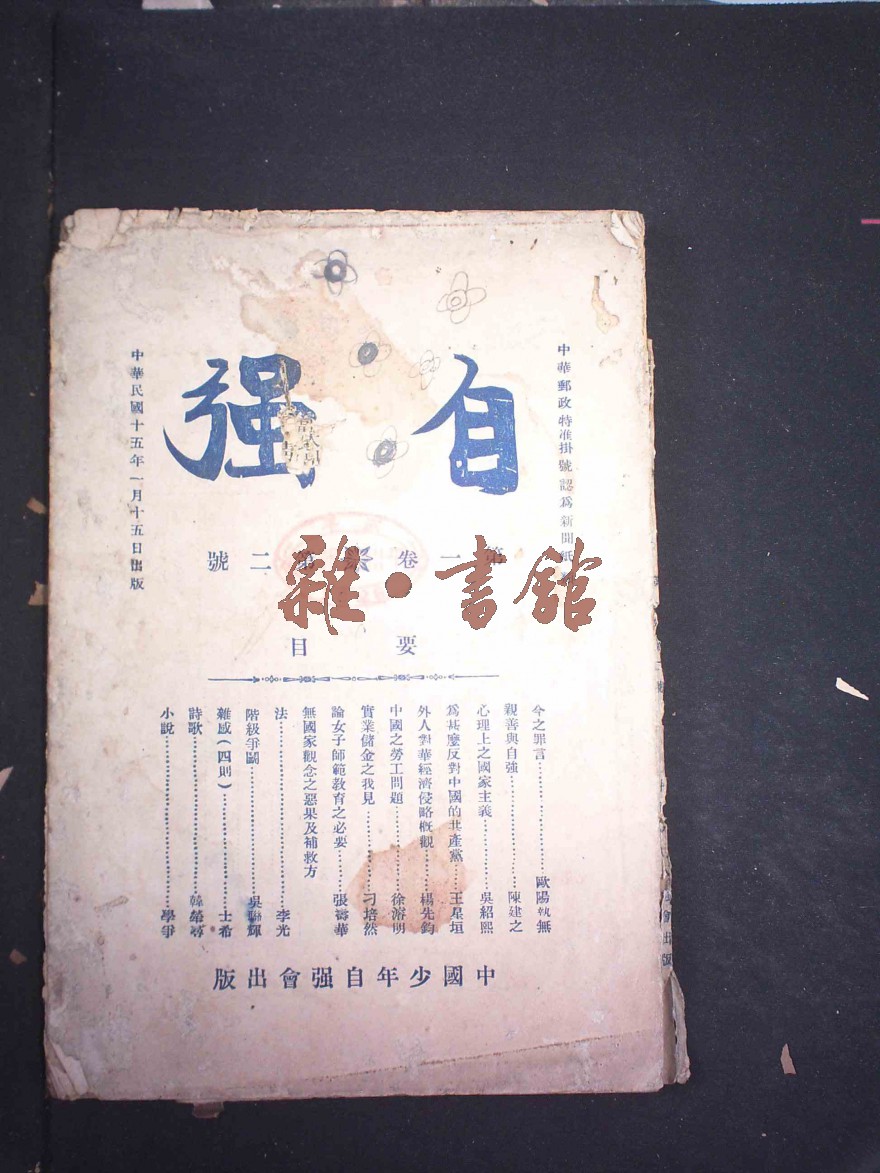 中華郵政特准掛號認爲新聞紙
自强
中華民國十五年一月十五日出版
第一卷 第二號
雜·書館
要目
今之罪言……歐陽執無
親善與自強……陳建之
心理上之國家主義……吳紹熙
爲甚麼反對中國的共產黨……王星垣
外人對華經濟侵略概觀……楊先鈞
中國之勞工問題……徐濬明
實業儲金之我見……刁培然
論女子師範教育之必要……張壽華
無國家觀念之惡果及補救方法……李光
階級爭鬭……吳聯輝
雜感(四則)……士希
詩歌……韓榮
小說……學爭
中國少年自强會出版